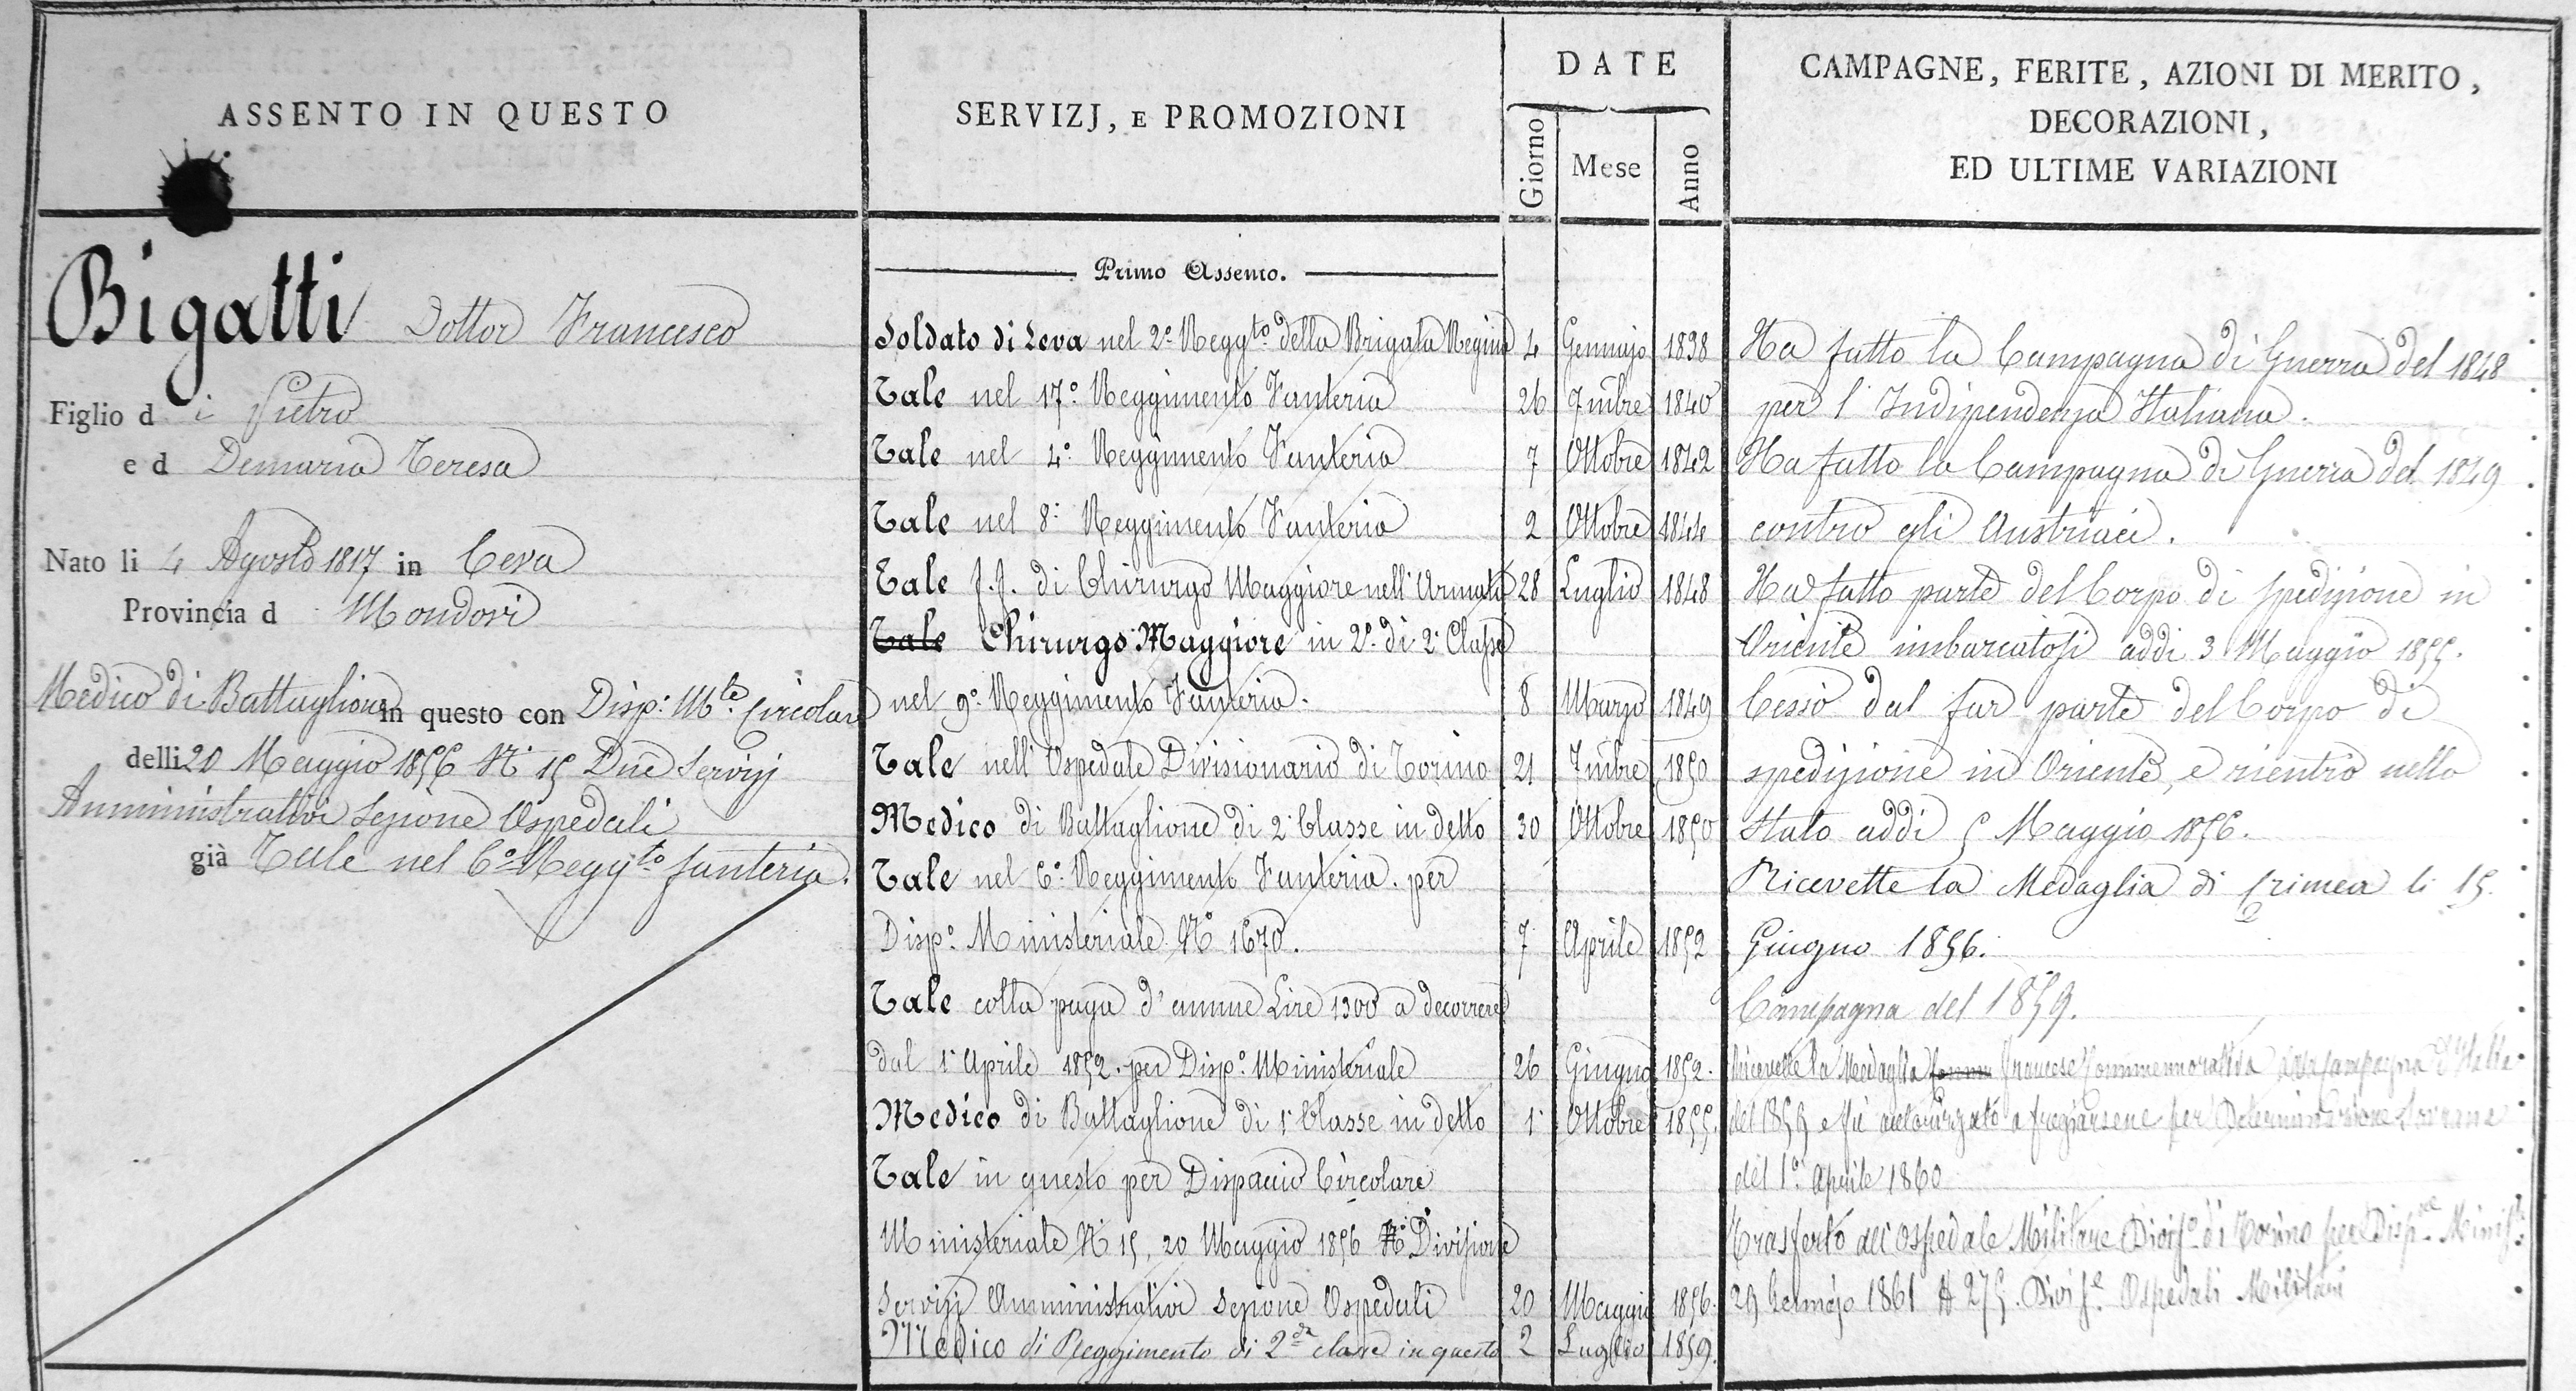 ASSENTO IN QUESTO
Bigatti Dottor Francesco
Figlio d i Pietro
e d Demaria Teresa
Nato li 4 Agosto 1817 in Ceva
Provincia d Mondovi
Medico di Battaglione in questo con Disp: Mle Circolare
delli 20 Maggio 1856 N. 15 Dne Servizj
Amministrativi Sezione Ospedali
già Tale nel 6º Reggto fanteria.
SERVIZJ, E PROMOZIONI
DATE
Giorno Mese Anno
Primo Assento.
Soldato di Leva nel 2º Reggto della Brigata Regina 4 Gennajo 1838
Tale nel 17º Reggimento Fanteria 26 7mbre 1840
Tale nel 4º Reggimento Fanteria 7 Ottobre 1842
Tale nel 8º Reggimento Fanteria 2 Ottobre 1844
Tale f.f. di Chirurgo Maggiore nell'Armata 28 Luglio 1848
Tale Chirurgo Maggiore in 2º di 2ª Classe
nel 9º Reggimento Fanteria. 8 Marzo 1849
Tale nell'Ospedale Divisionario di Torino 21 7mbre 1850
Medico di Battaglione di 2ª Classe in detto 30 Ottobre 1850
Tale nel 6º Reggimento Fanteria. per
Dispº Ministeriale Nº 1670. 7 Aprile 1852
Tale colla paga d'annue Lire 1300 a decorrere
dal 1º Aprile 1852. per Dispº Ministeriale 26 Giugno 1852.
Medico di Battaglione di 1ª Classe in detto 1º Ottobre 1855.
Tale in questo per Dispaccio Circolare
Ministeriale N. 15, 20 Maggio 1856 Divisione
Servizj Amministrativi Sezione Ospedali 20 Maggio 1856.
Medico di Reggimento di 2da classe in questo 2 Luglio 1859.
CAMPAGNE, FERITE, AZIONI DI MERITO,
DECORAZIONI,
ED ULTIME VARIAZIONI
Ha fatto la Campagna di Guerra del 1848
per l'Indipendenza Italiana.
Ha fatto la Campagna di Guerra del 1849
contro gli Austriaci.
Ha fatto parte del Corpo di spedizione in
Oriente imbarcatosi addi 3 Maggio 1855.
Cessò dal far parte del Corpo di
spedizione in Oriente, e rientrò nello
Stato addi 5 Maggio 1856.
Ricevette la Medaglia di Crimea li 15
Giugno 1856.
Campagna del 1859.
Ricevette la Medaglia francese Commemorativa della Campagna d'Italia
del 1859 e fu autorizzato a fregiarsene per Determinazione Sovrana
del 1º Aprile 1860
Trasferto all'Ospedale Militare Divisº di Torino per Dispº Minisle
29 Gennajo 1861 N 275. Divise Ospedali Militari